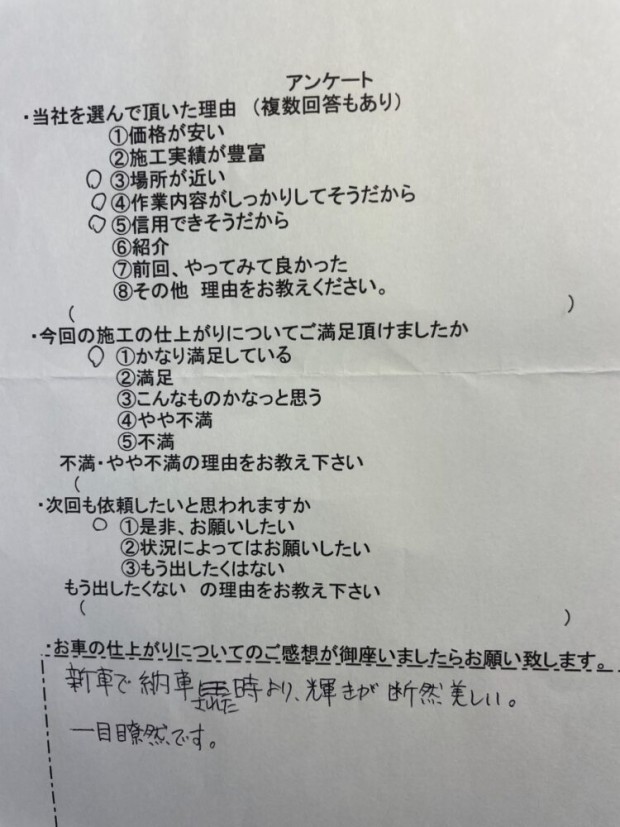 アンケート
・当社を選んで頂いた理由　（複数回答もあり）
①価格が安い
②施工実績が豊富
○ ③場所が近い
○ ④作業内容がしっかりしてそうだから
○ ⑤信用できそうだから
⑥紹介
⑦前回、やってみて良かった
⑧その他　理由をお教えください。
（　　　）
・今回の施工の仕上がりについてご満足頂けましたか
○ ①かなり満足している
②満足
③こんなものかなっと思う
④やや不満
⑤不満
不満・やや不満の理由をお教え下さい
（
・次回も依頼したいと思われますか
○ ①是非、お願いしたい
②状況によってはお願いしたい
③もう出したくはない
もう出したくない　の理由をお教え下さい
（　　　）
・お車の仕上がりについてのご感想が御座いましたらお願い致します。
新車で納車された時より、輝きが断然美しい。
一目瞭然です。